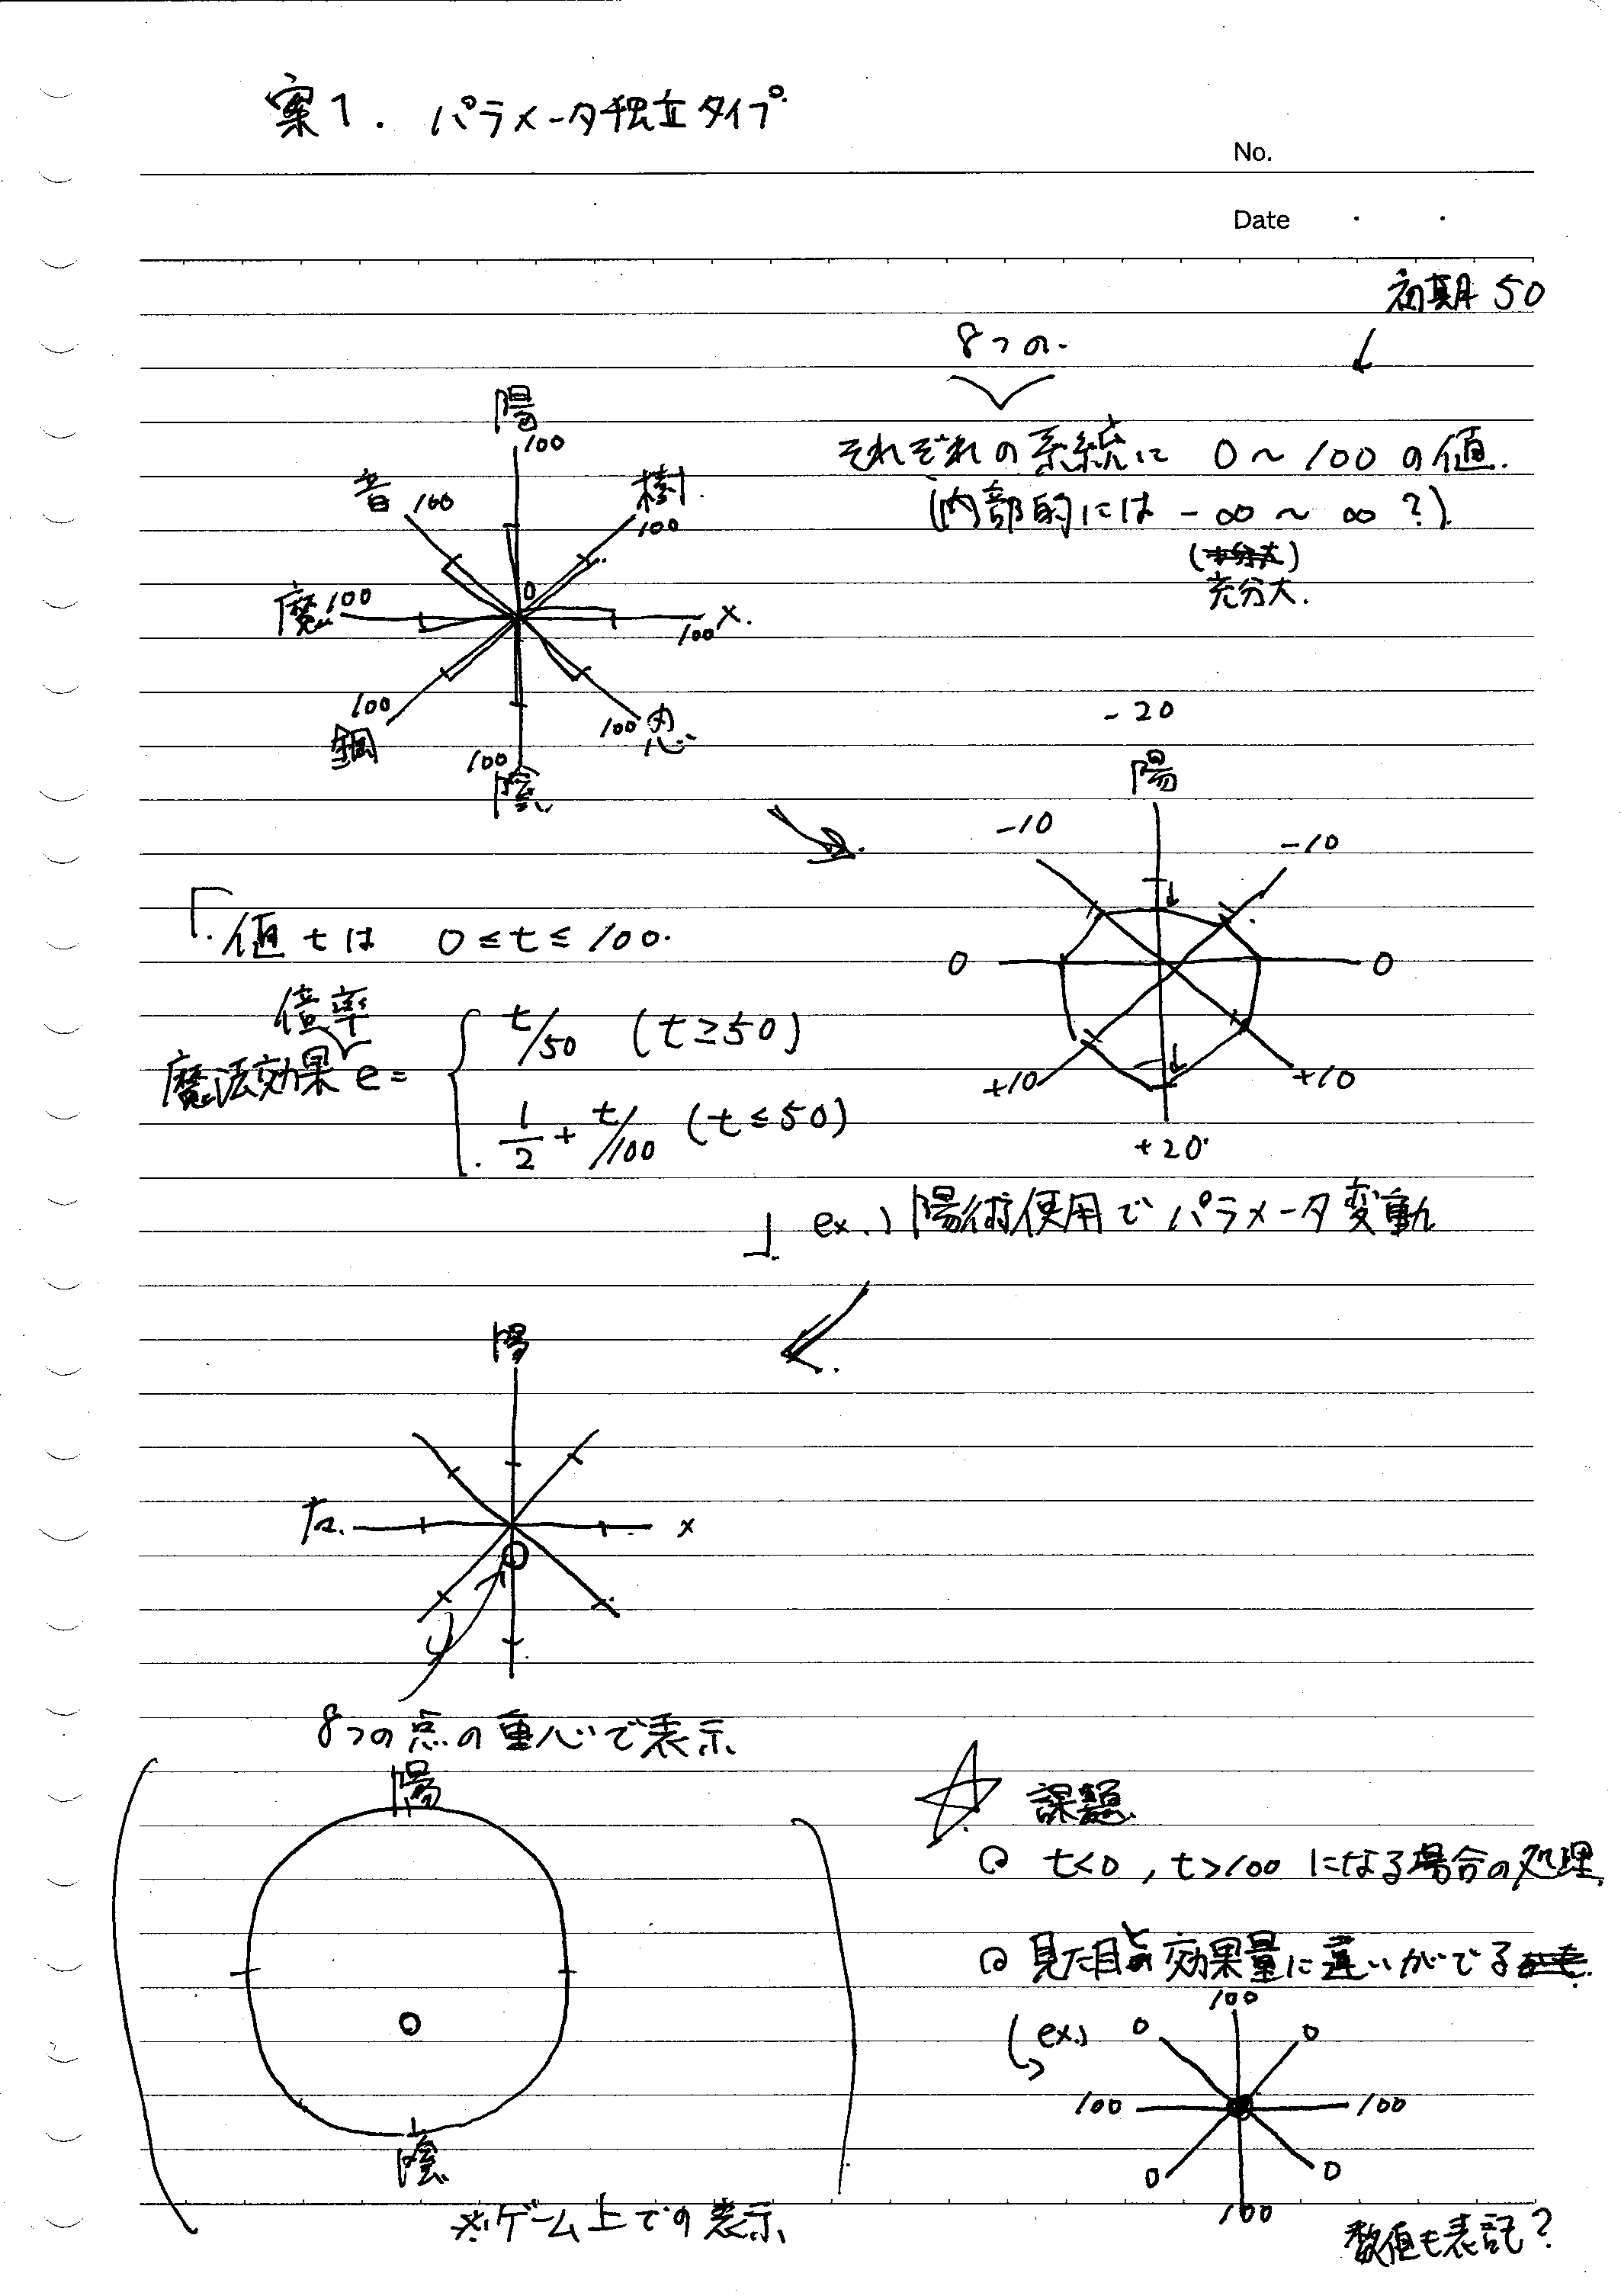 案1. パラメータ独立タイプ
No.
Date
初期 50
8つの
それぞれの系統に 0～100 の値.
(内部的には -∞ ～ ∞ ?)
充分大.
陽
100
音 100
樹
100
魔 100
0
x
100
100
鋼
100 忍
100
陰
-20
陽
-10
-10
0
0
+10
+10
+20
「値 t は 0≤t≤100.
倍率
魔法効果 e =
t/50 (t≥50)
1/2 + t/100 (t≤50)
」
ex.) 陽術使用でパラメータ変動
陽
x
8つの点の重心で表示
陽
陰
※ゲーム上での表示
課題
t<0, t>100 になる場合の処理
見た目と効果量に違いがでる
ex.)
100
0
0
100
100
0
0
100
数値も表記?